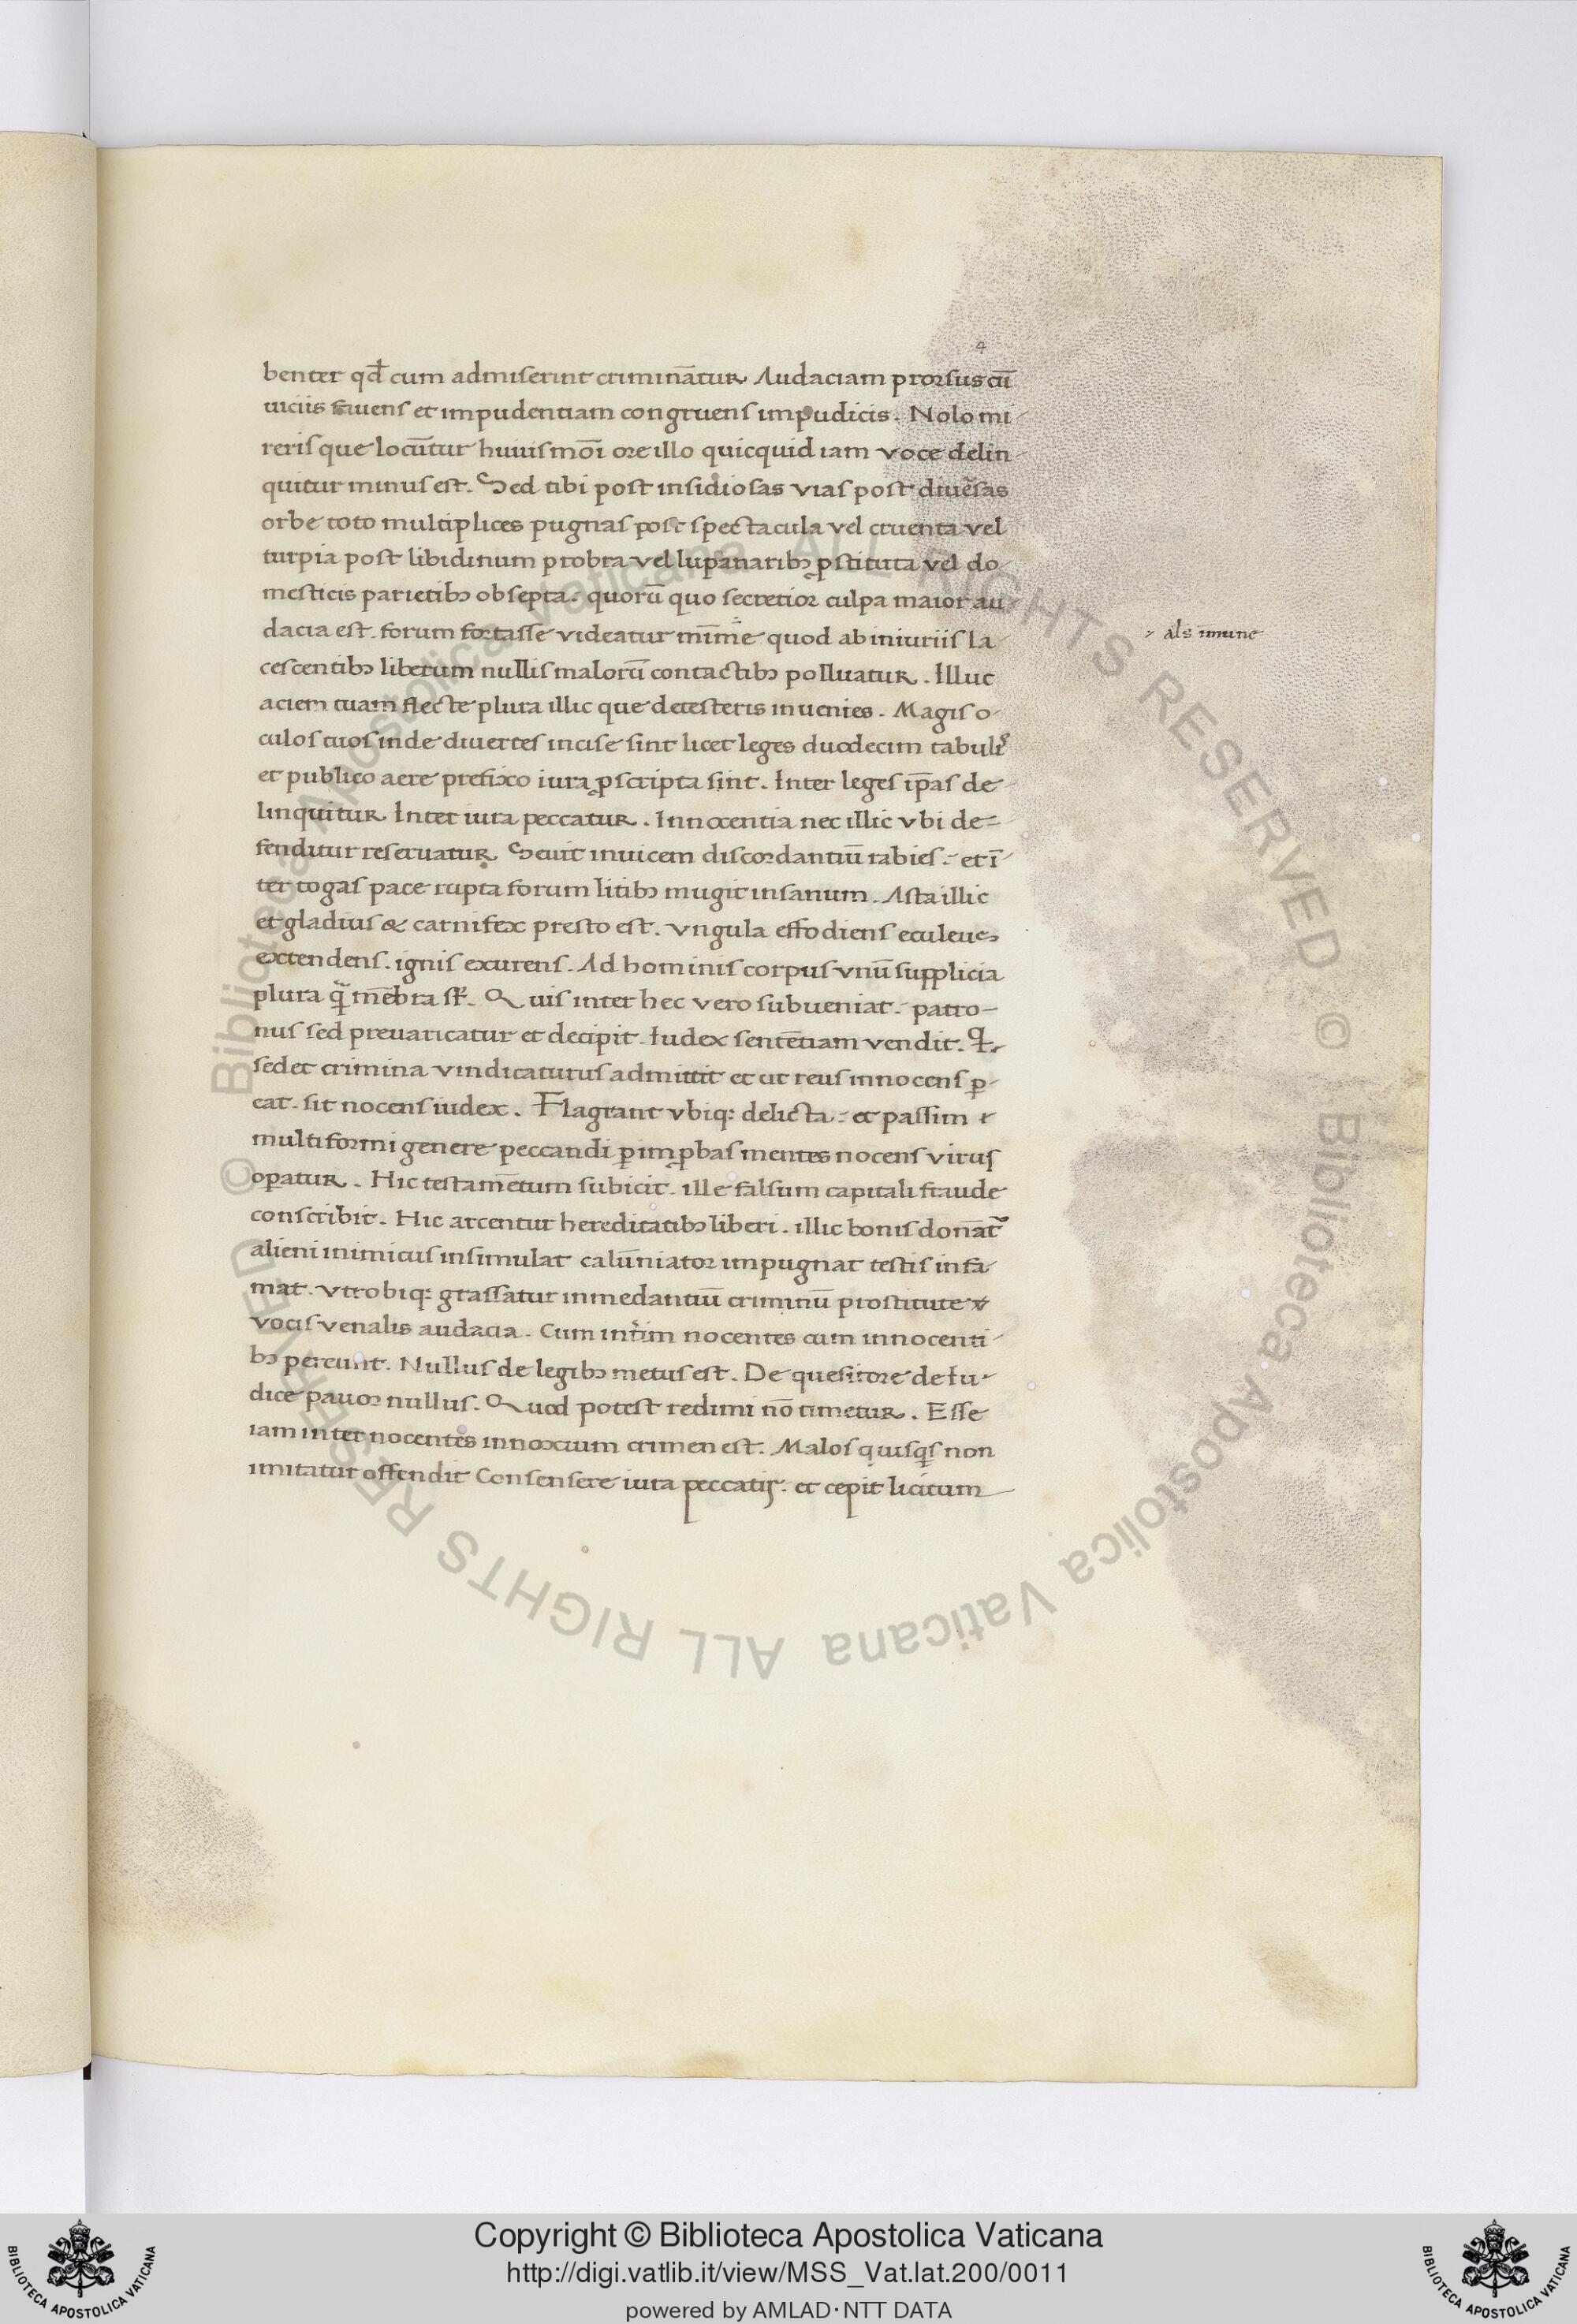 4
benter qd̄ cum admiserint criminãtur Audaciam prorsus cũ
uiciis fauens et impudentiam congruens impudicis. Nolo mi
reris que locũtur huiusmõi ore illo quicquid iam voce delin
quitur minus est. Sed tibi post insidiosas vias post diuẽsas
orbe toto multiplices pugnas post spectacula vel cruenta vel
turpia post libidinum probra vel lupanaribꝫ ꝓstituta vel do
mesticis parietibꝫ obsepta. quorũ quo secretior culpa maior au
dacia est. forum fortasse videatur mĩme quod ab iniuriis la
als imune
cescentibꝫ liberum nullis malorũ contactibꝫ polluatur. Illuc
aciem tuam flecte plura illic que detesteris inuenies. Magis o
culos tuos inde diuertes incise sint licet leges duodecim tabulis
et publico aere prefixo iura ꝓscripta sint. Inter leges ip̃as de
linquitur Inter iura peccatur. Innocentia nec illic vbi de=
fenditur reseruatur Seuit inuicem discordantiũ rabies. et ĩ
ter togas pace rupta forum litibꝫ mugit insanum. Asta illic
et gladius & carnifex presto est. vngula effodiens eculeus
extendens. ignis exurens. Ad hominis corpus vnũ supplicia
plura q̃ mẽbra st̃. Quis inter hec vero subueniat. patro-
nus sed preuaricatur et decipit. Iudex sentẽtiam vendit. Q.
sedet crimina vindicaturus admittit et ut reus innocens ꝑ
eat. sit nocens iudex. Flagrant vbiq: delicta. et passim
multiformi genere peccandi ꝑ imꝓbas mentes nocens virus
oꝑatur. Hic testamẽtum subicit. ille falsum capitali fraude
conscribit. Hic arcentur hereditatibꝫ liberi. illic bonis donãt᷑
alieni inimicus insimulat calũniator impugnat testis infa
mat. vtrobiq: grassatur in medantiũ criminũ prostitute
vocis venalis audacia. Cum int̃im nocentes cum innocenti
bꝫ pereunt. Nullus de legibꝫ metus est. De quesitore de Iu
dice pauor nullus. Quod potest redimi nõ timetur. Esse
iam inter nocentes innoxium crimen est. Malos quisq̃s non
imitatur offendit Consensere iura peccatis. et cepit licitum
Copyright © Biblioteca Apostolica Vaticana
http://digi.vatlib.it/view/MSS_Vat.lat.200/0011
powered by AMLAD·NTT DATA
BIBLIOTECA APOSTOLICA VATICANA
BIBLIOTECA APOSTOLICA VATICANA
© Biblioteca Apostolica Vaticana ALL RIGHTS RESERVED
© Biblioteca Apostolica Vaticana ALL RIGHTS RESERVED